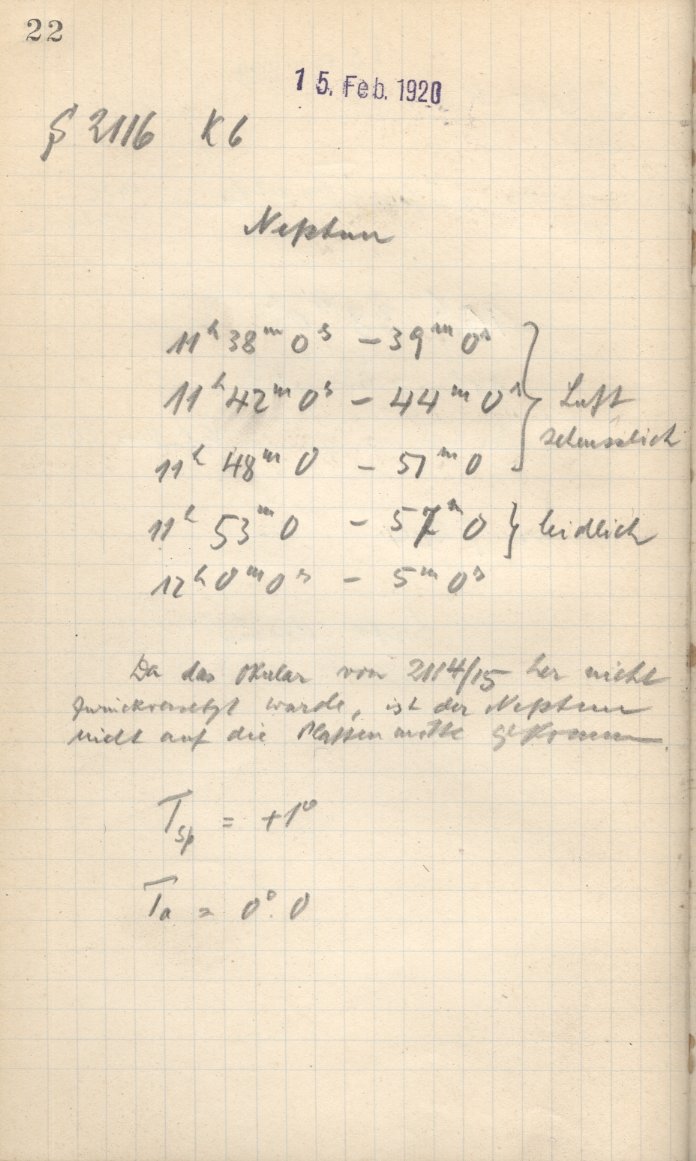 22
15. Feb. 1920
S 2116 K6
Neptun
11h 38m 0s – 39m 0s
11h 42m 0s – 44m 0s Luft
scheusslich
11h 48m 0 – 51m 0
11h 53m 0 – 57m 0 leidlich
12h 0m 0s – 5m 0s
Da das Okular von 2114/15 her nicht
zurückversetzt wurde, ist der Neptun
nicht auf die Plattenmitte gekommen.
Tsp = +1°
Ta = 0°.0